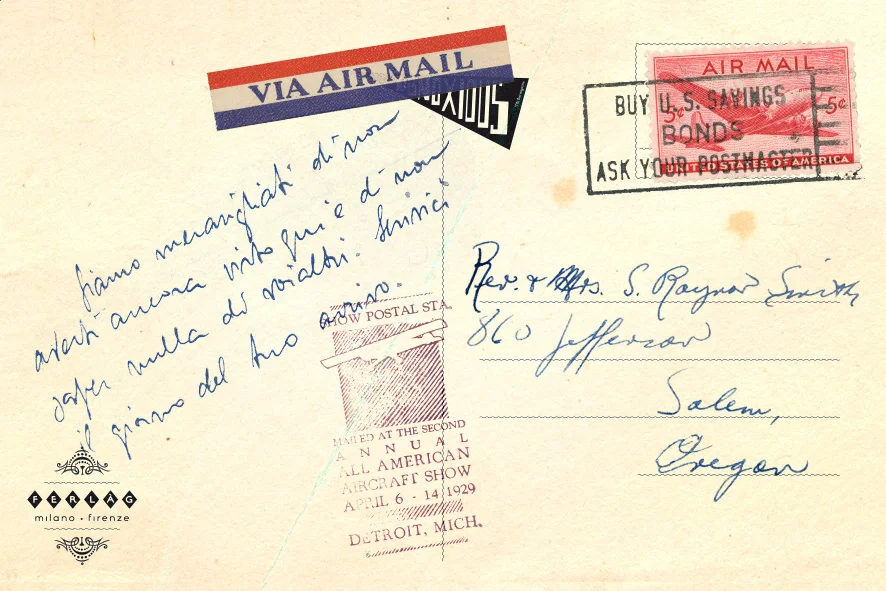 VIA AIR MAIL
NOXIOUS
AIR MAIL
5¢ 5¢
UNITED STATES OF AMERICA
BUY U.S. SAVINGS
BONDS
ASK YOUR POSTMASTER
Siamo meravigliati di non
averti ancora visto qui e di non
saper nulla di voialtri. Scrivici
il giorno del tuo arrivo.
Rev. & Mrs. S. Raynor Smith
860 Jefferson
Salem,
Oregon
SHOW POSTAL STA.
MAILED AT THE SECOND
ANNUAL
ALL AMERICAN
AIRCRAFT SHOW
APRIL 6 - 14 1929
DETROIT, MICH.
FERLÀG
milano • firenze